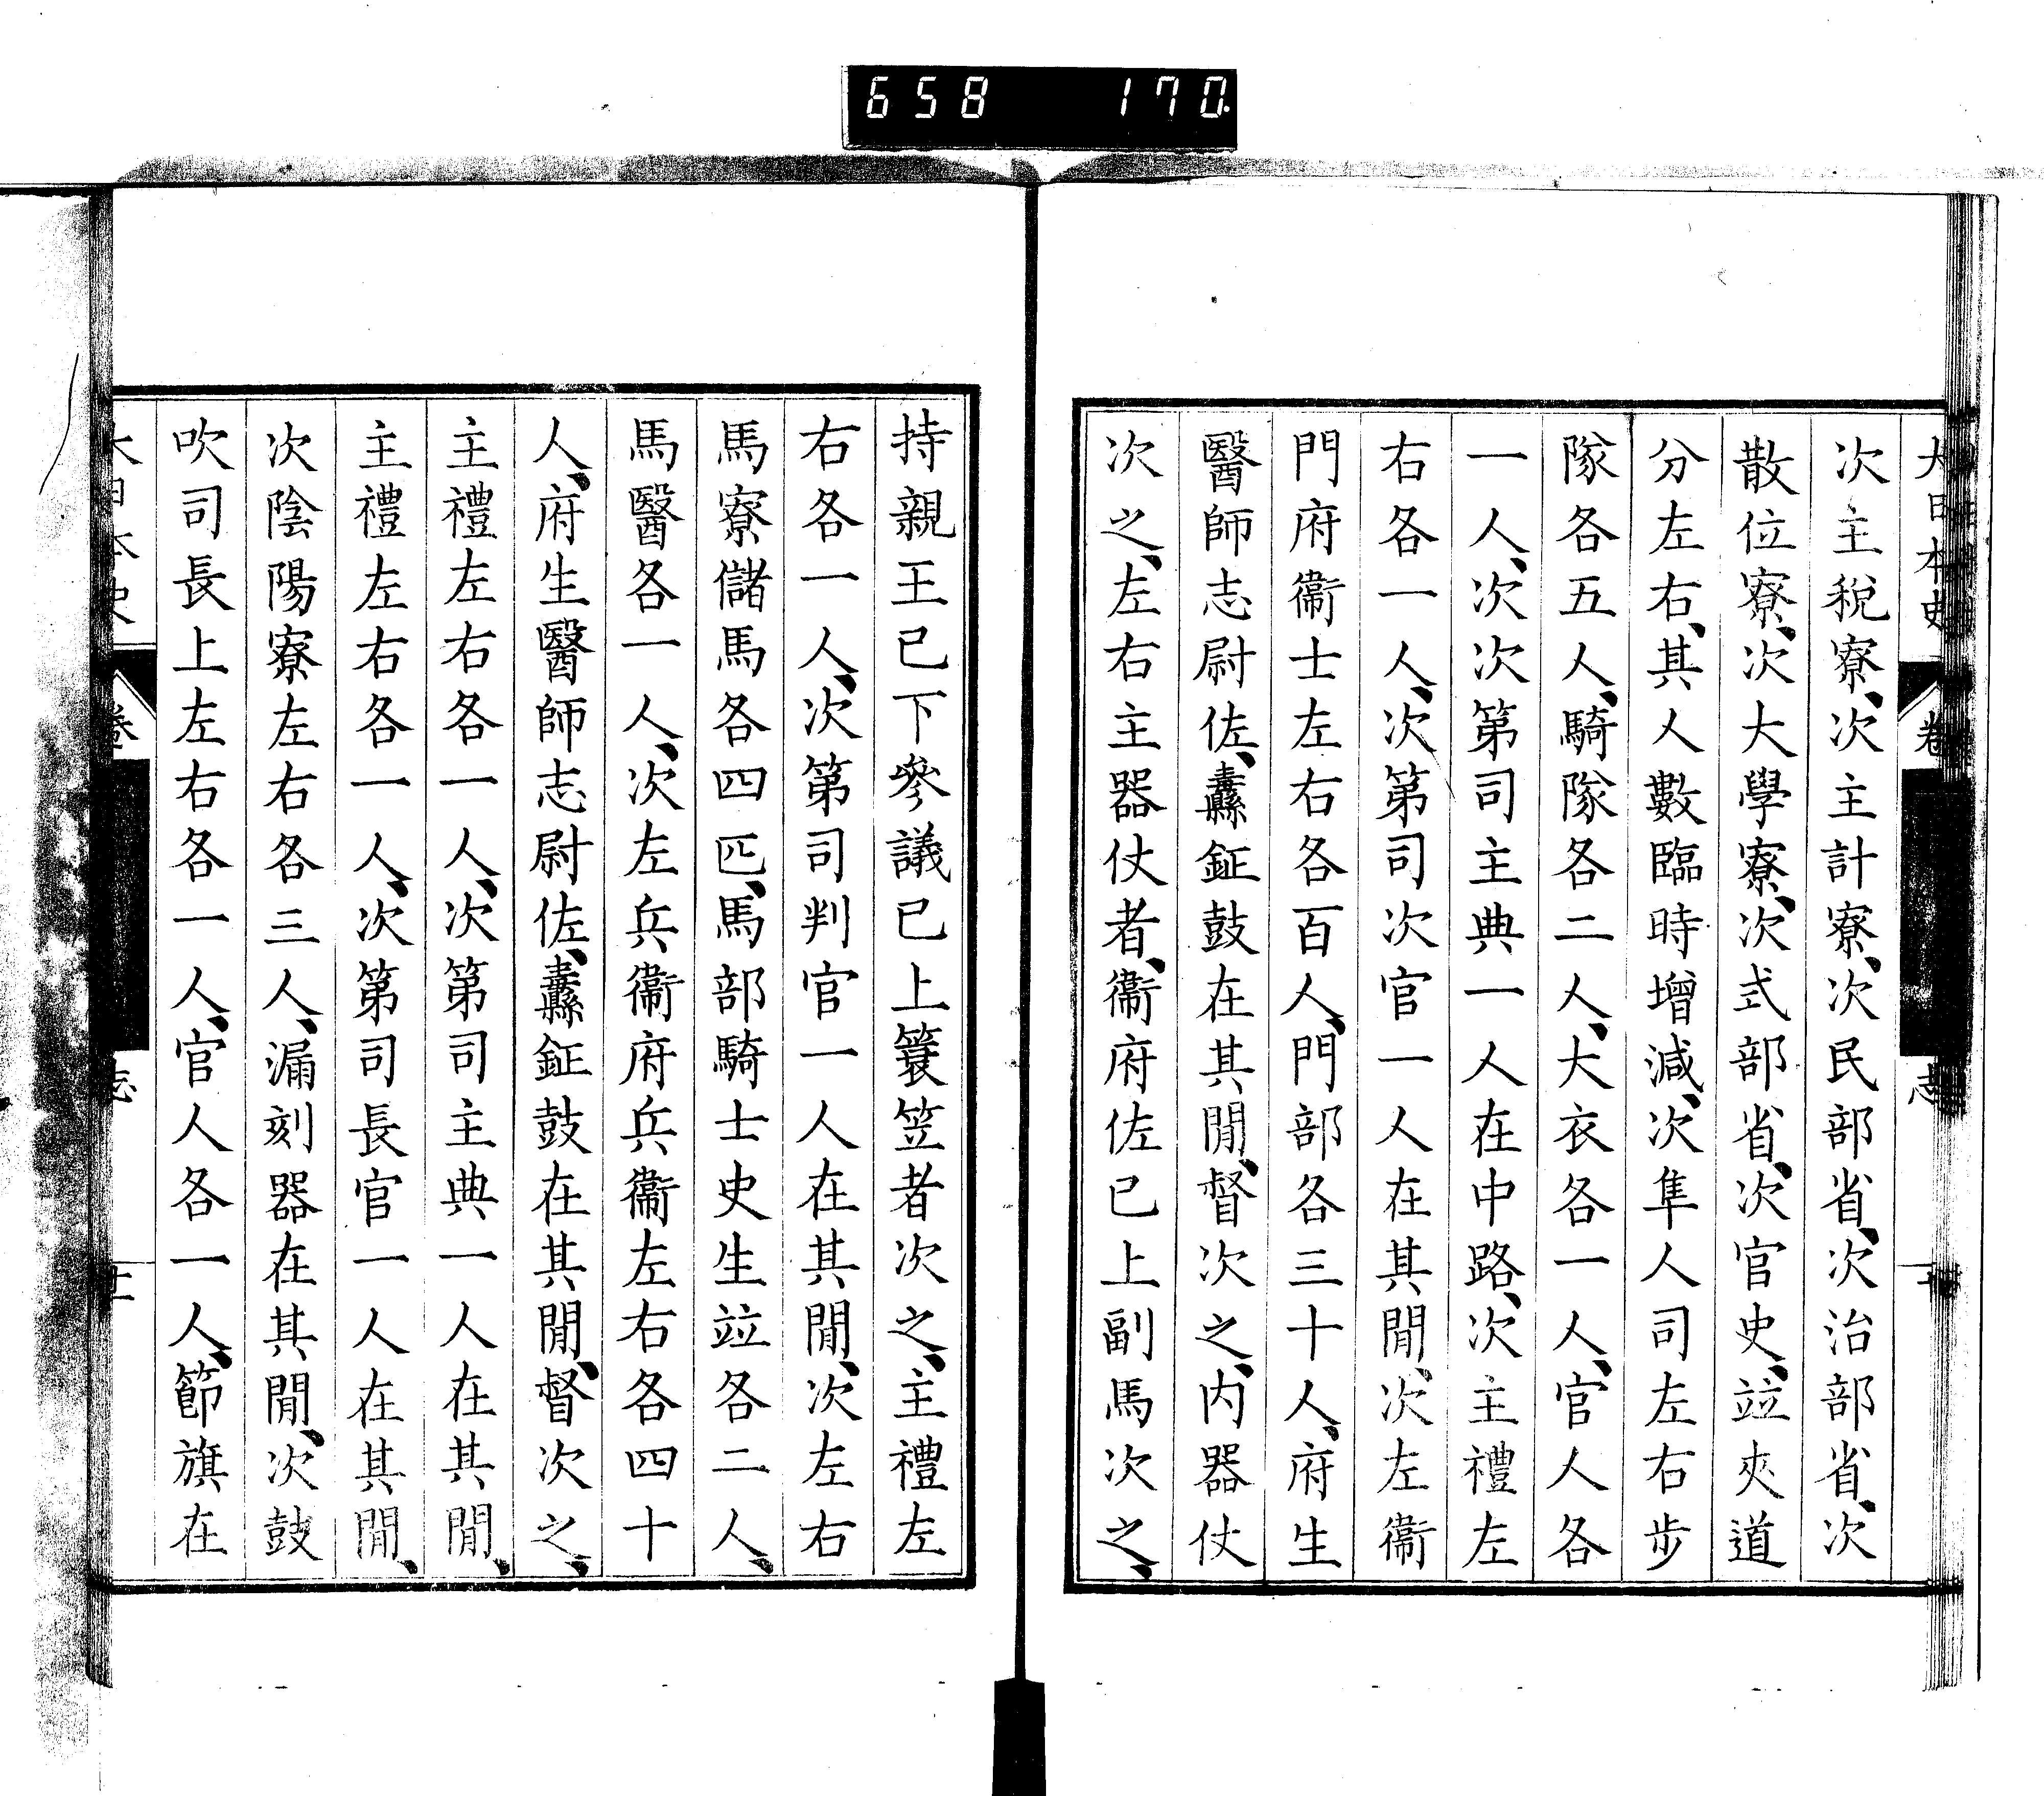 658 170
大日本史 卷 志
次主稅寮、次主計寮、次民部省、次治部省、次
散位寮、次大學寮、次式部省、次官史、竝夾道
分左右、其人數臨時增減、次隼人司左右步
隊各五人、騎隊各二人、大衣各一人、官人各
一人、次次第司主典一人在中路、次主禮左
右各一人、次第司次官一人在其閒、次左衞
門府衞士左右各百人、門部各三十人、府生
醫師志尉佐、纛鉦鼓在其閒、督次之、內器仗
次之、左右主器仗者、衞府佐已上副馬次之、
持親王已下參議已上簑笠者次之、主禮左
右各一人、次第司判官一人在其閒、次左右
馬寮儲馬各四匹、馬部騎士史生竝各二人、
馬醫各一人、次左兵衞府兵衞左右各四十
人、府生醫師志尉佐、纛鉦鼓在其閒、督次之、
主禮左右各一人、次第司主典一人在其閒、
主禮左右各一人、次第司長官一人在其閒、
次陰陽寮左右各三人、漏刻器在其閒、次鼓
吹司長上左右各一人、官人各一人、節旗在
大日本史 卷 志